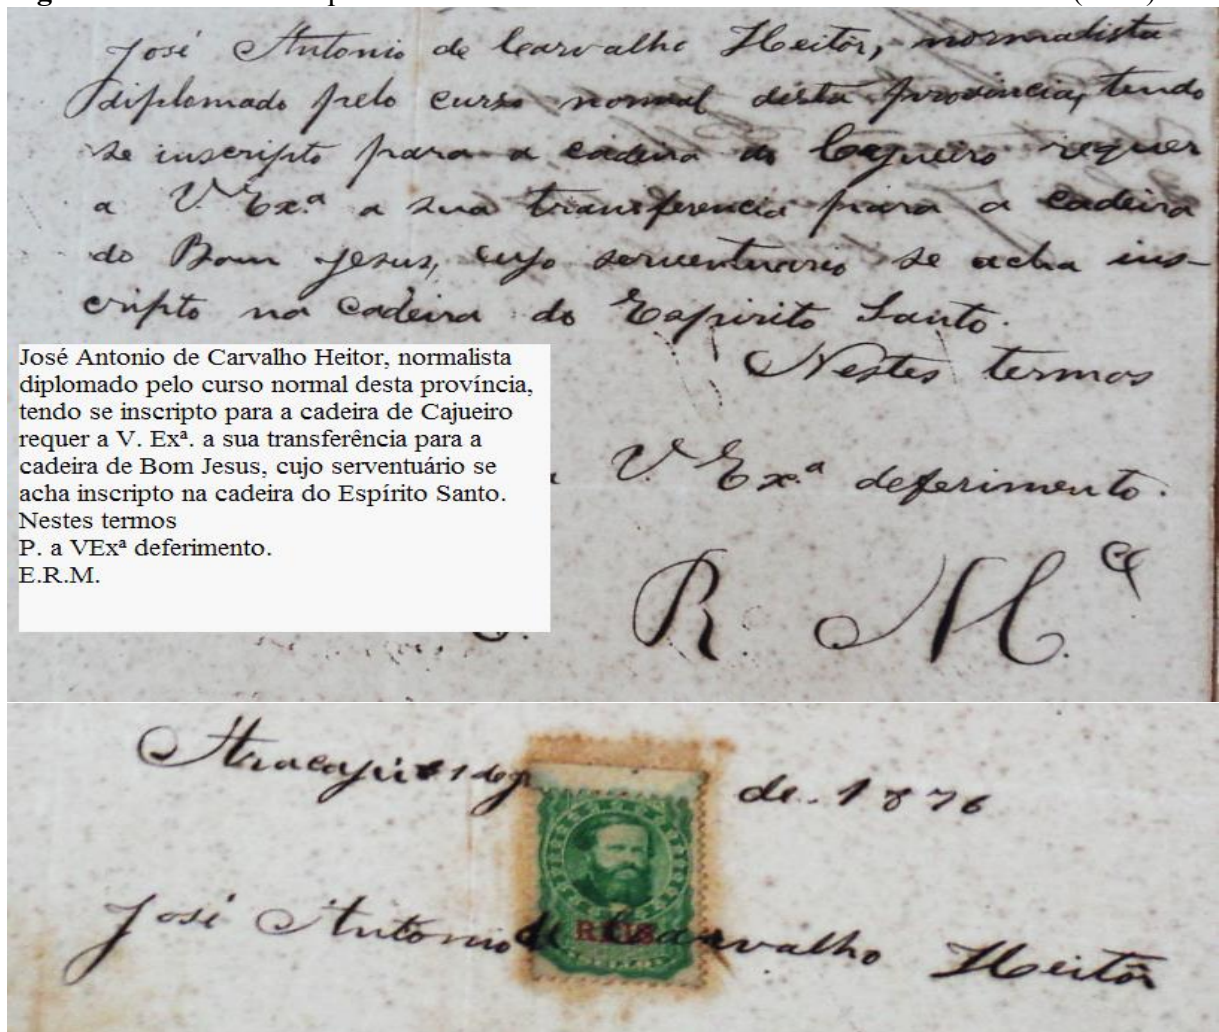 José Antonio de Carvalho Heitôr, normalista
diplomado pelo curso normal desta provincia, tendo
se inscripto para a cadeira do Cajueiro requer
a V. Exª a sua transferencia para a cadeira
do Bom Jesus, cujo serventuario se acha ins-
cripto na cadeira do Espirito Santo.
Nestes termos
V. Exª deferimento.
R. M.
José Antonio de Carvalho Heitor, normalista
diplomado pelo curso normal desta província,
tendo se inscripto para a cadeira de Cajueiro
requer a V. Exª. a sua transferência para a
cadeira de Bom Jesus, cujo serventuário se
acha inscripto na cadeira do Espírito Santo.
Nestes termos
P. a VExª deferimento.
E.R.M.
Aracajú de 1876
REIS
José Antonio de Carvalho Heitôr